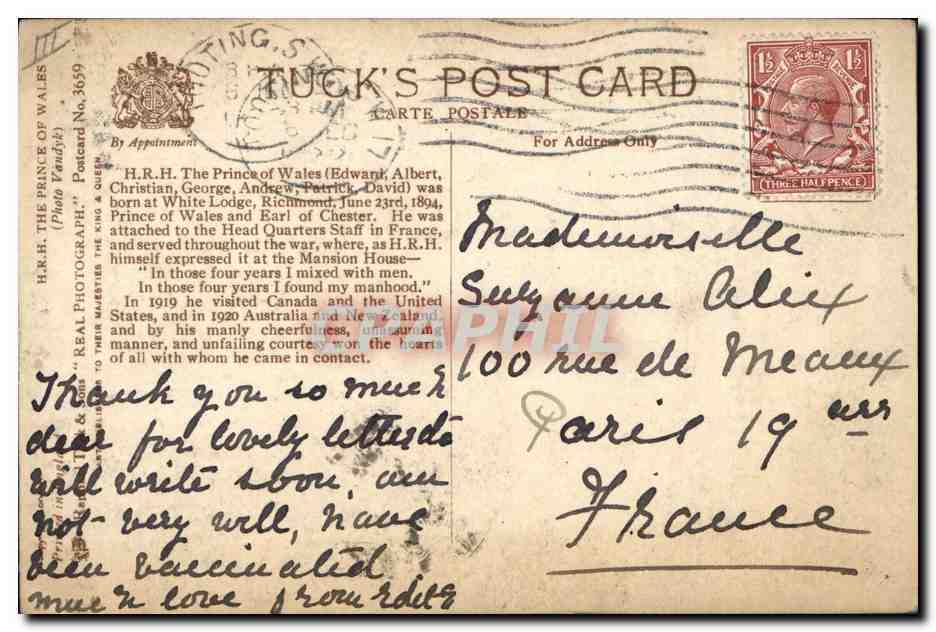 III
H.R.H. THE PRINCE OF WALES
(Photo Vandyk)
"REAL PHOTOGRAPH." Postcard No. 3659
TO THEIR MAJESTIES THE KING & QUEEN
By Appointment
TUCK'S POST CARD
CARTE POSTALE
For Address Only
1½ 1½
THREE HALFPENCE
H.R.H. The Prince of Wales (Edward, Albert,
Christian, George, Andrew, Patrick, David) was
born at White Lodge, Richmond, June 23rd, 1894,
Prince of Wales and Earl of Chester. He was
attached to the Head Quarters Staff in France,
and served throughout the war, where, as H.R.H.
himself expressed it at the Mansion House—
"In those four years I mixed with men.
In those four years I found my manhood."
In 1919 he visited Canada and the United
States, and in 1920 Australia and New Zealand,
and by his manly cheerfulness, unassuming
manner, and unfailing courtesy won the hearts
of all with whom he came in contact.
Thank you so much
dear for lovely letters do
will write soon, am
not very well, have
been vaccinated
much love from Edith
Mademoiselle
Suzanne Alix
100 rue de Meaux
Paris 19 arr
France